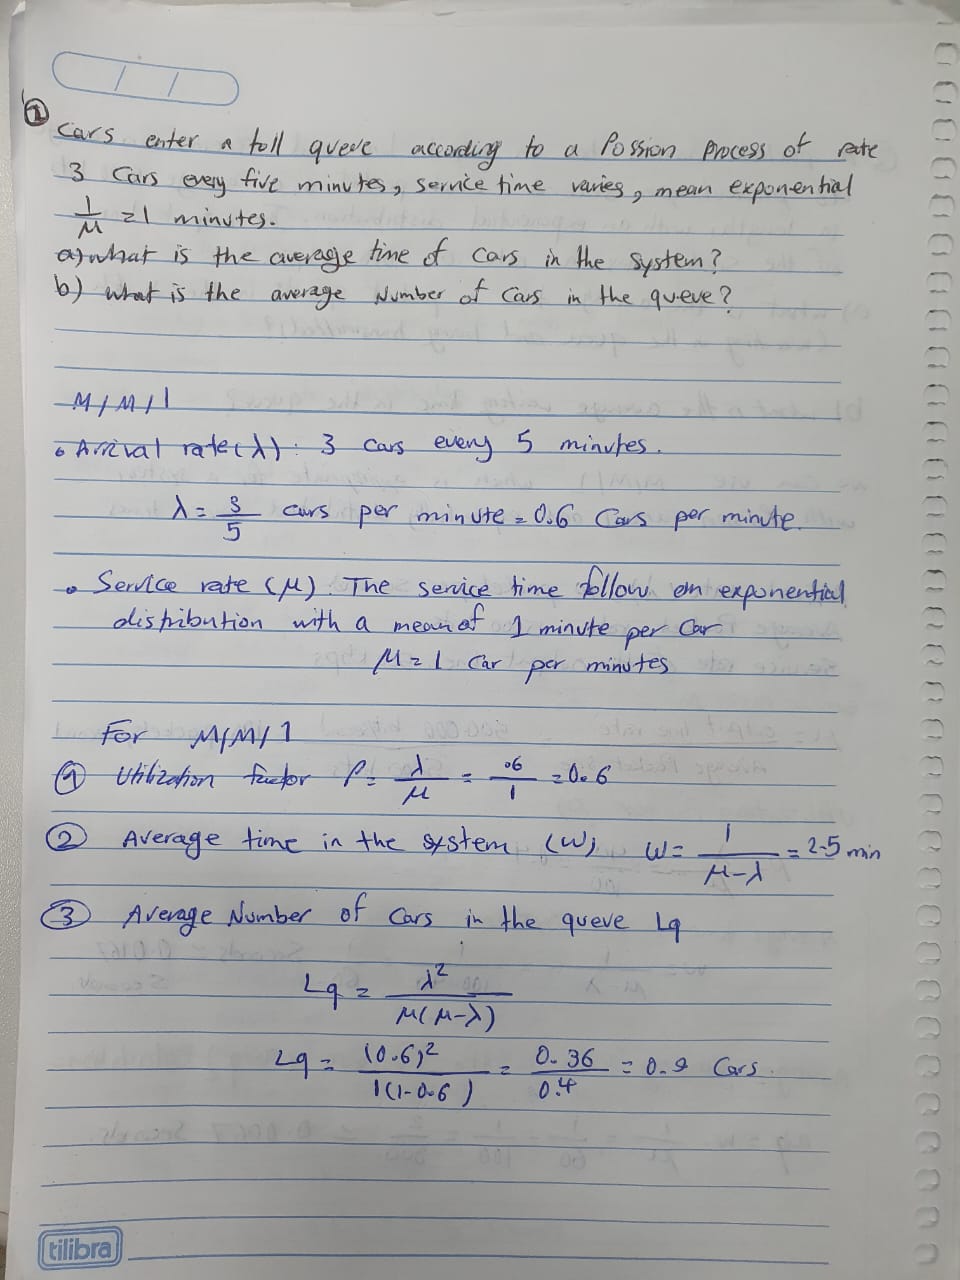 ①
Cars enter a toll queve according to a Possion Process of rate
3 Cars every five minutes, service time varies, mean exponential
1/M = 1 minutes.
a) what is the average time of Cars in the system?
b) what is the average Number of Cars in the queve?
M/M/1
• Arrival rate (λ): 3 cars every 5 minutes.
λ = 3/5 cars per minute = 0.6 Cars per minute.
• Service rate (M). The service time follow an exponential
distribution with a mean of 1 minute per Car
M = 1 Car per minutes
For M/M/1
① Utilization factor P = λ/M = 06/1 = 0.6
② Average time in the system (W), W = 1/(M-λ) = 2.5 min
③ Average Number of Cars in the queve Lq
Lq = λ²/M(M-λ)
Lq = (0.6)²/1(1-0.6) = 0.36/0.4 = 0.9 Cars.
tilibra